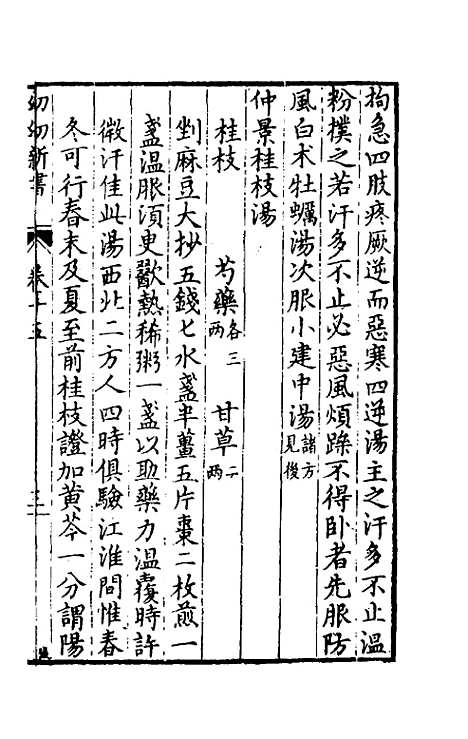 拘急四肢疼厥逆而惡寒四逆湯主之汗多不止温
粉撲之若汗多不止必惡風煩躁不得臥者先服防
風白术牡蠣湯次服小建中湯諸方見後
仲景桂枝湯
桂枝 芍藥各三兩 甘草二兩
剉麻豆大抄五錢七水盞半薑五片棗二枚煎一
盞温服須臾歠熱稀粥一盞以助藥力温覆時許
微汗佳此湯西北二方人四時俱驗江淮間惟春
冬可行春末及夏至前桂枝證加黄芩一分謂陽
幼幼新書 卷十五